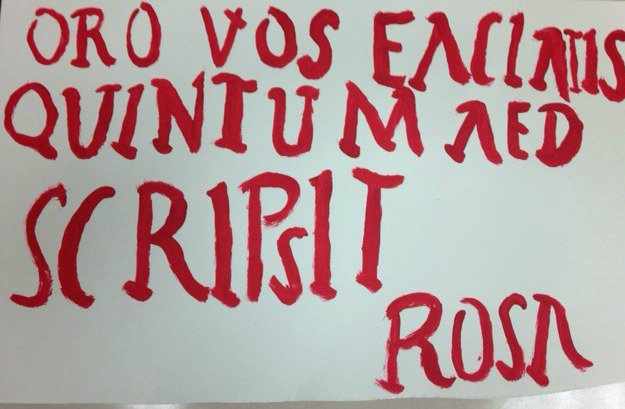 ORO VOS EACIATIS
QUINTUM AED
SCRIPSIT
ROSA